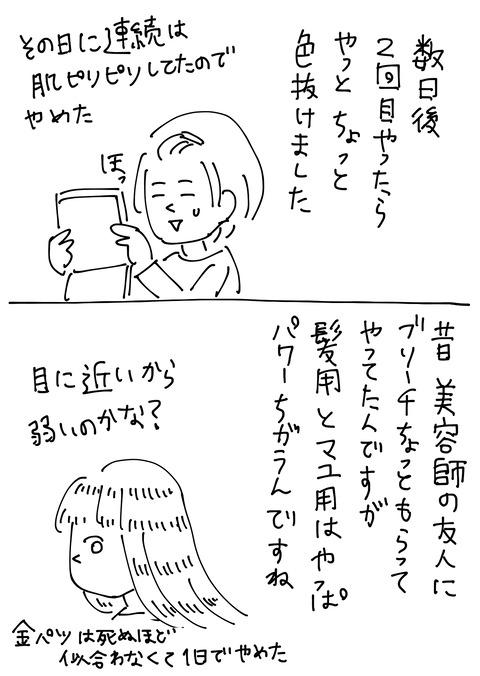 数日後
2回目やったら
やっと ちょっと
色抜けました
その日に連続は
肌ピリピリしてたので
やめた
ほっ
昔 美容師の友人に
ブリーチちょっともらって
やってたんですが
髪用とマユ用はやっぱ
パワーちがうんですね
目に近いから
弱いのかな?
金パツは死ぬほど
似合わなくて1日でやめた